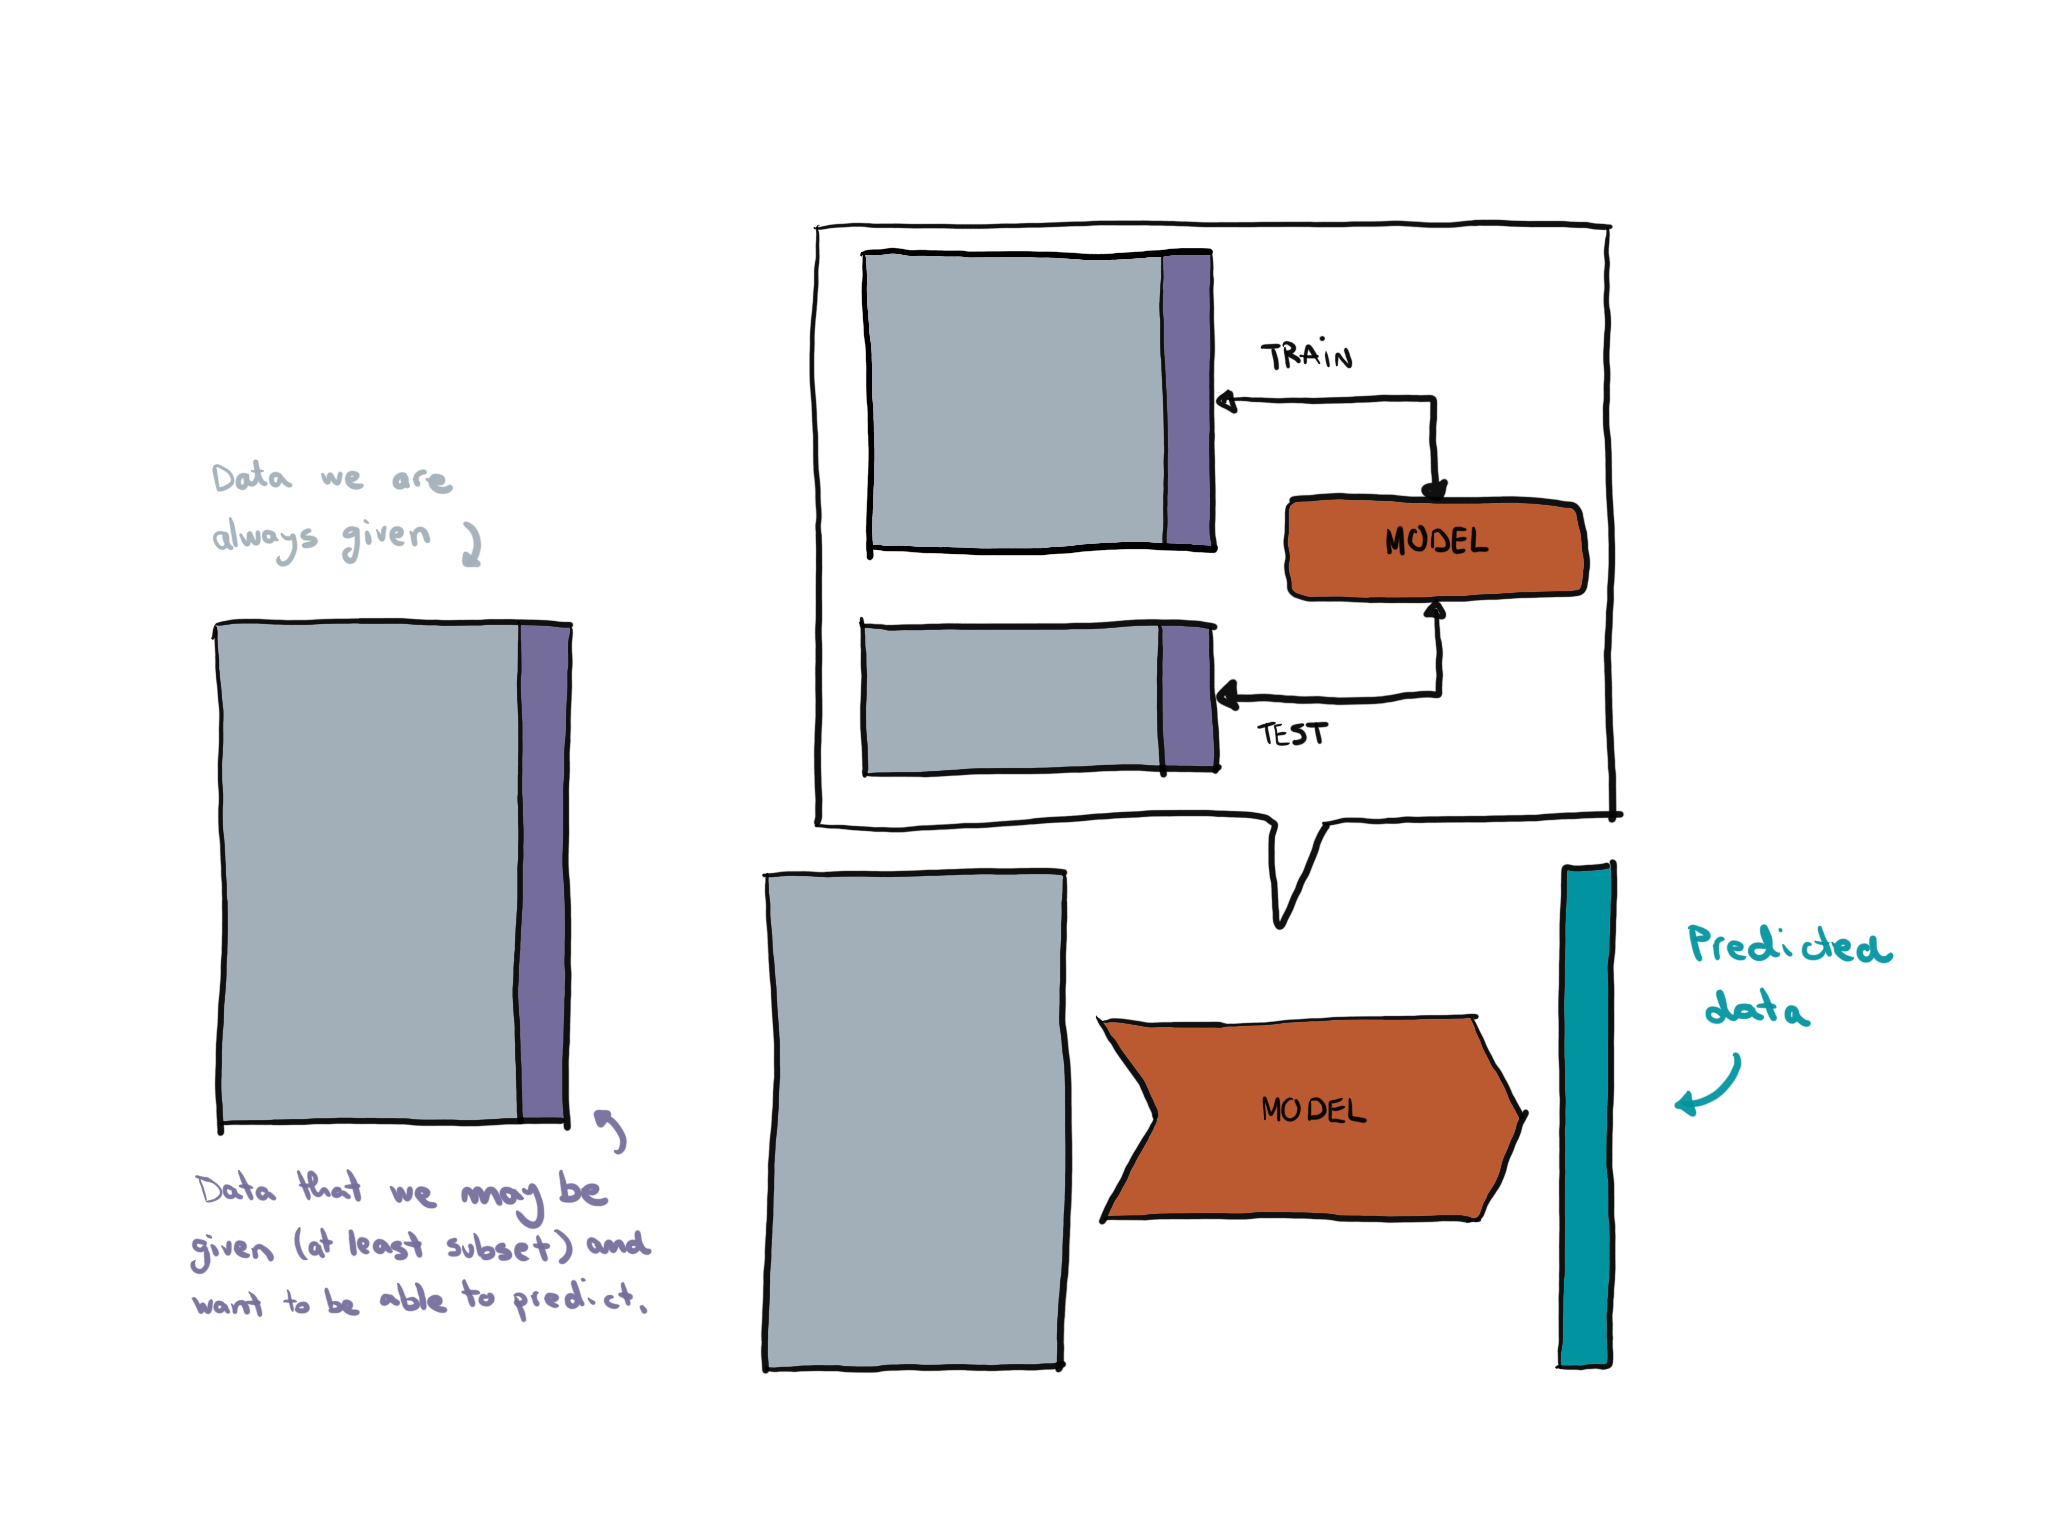 Data we are
always given
Data that we may be
given (at least subset) and
want to be able to predict.
TRAiN
MODEL
TEST
MODEL
Predicted
data